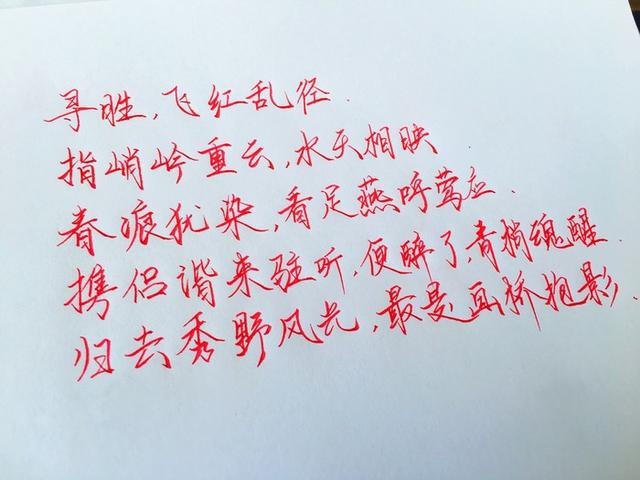 寻胜,飞红乱径.
指峭岭重云,水天相映.
春痕犹染,看足燕呼莺应.
携侣谐来驻听,便醉了,青梢魂醒.
归去秀野风光,最是画桥抱影.